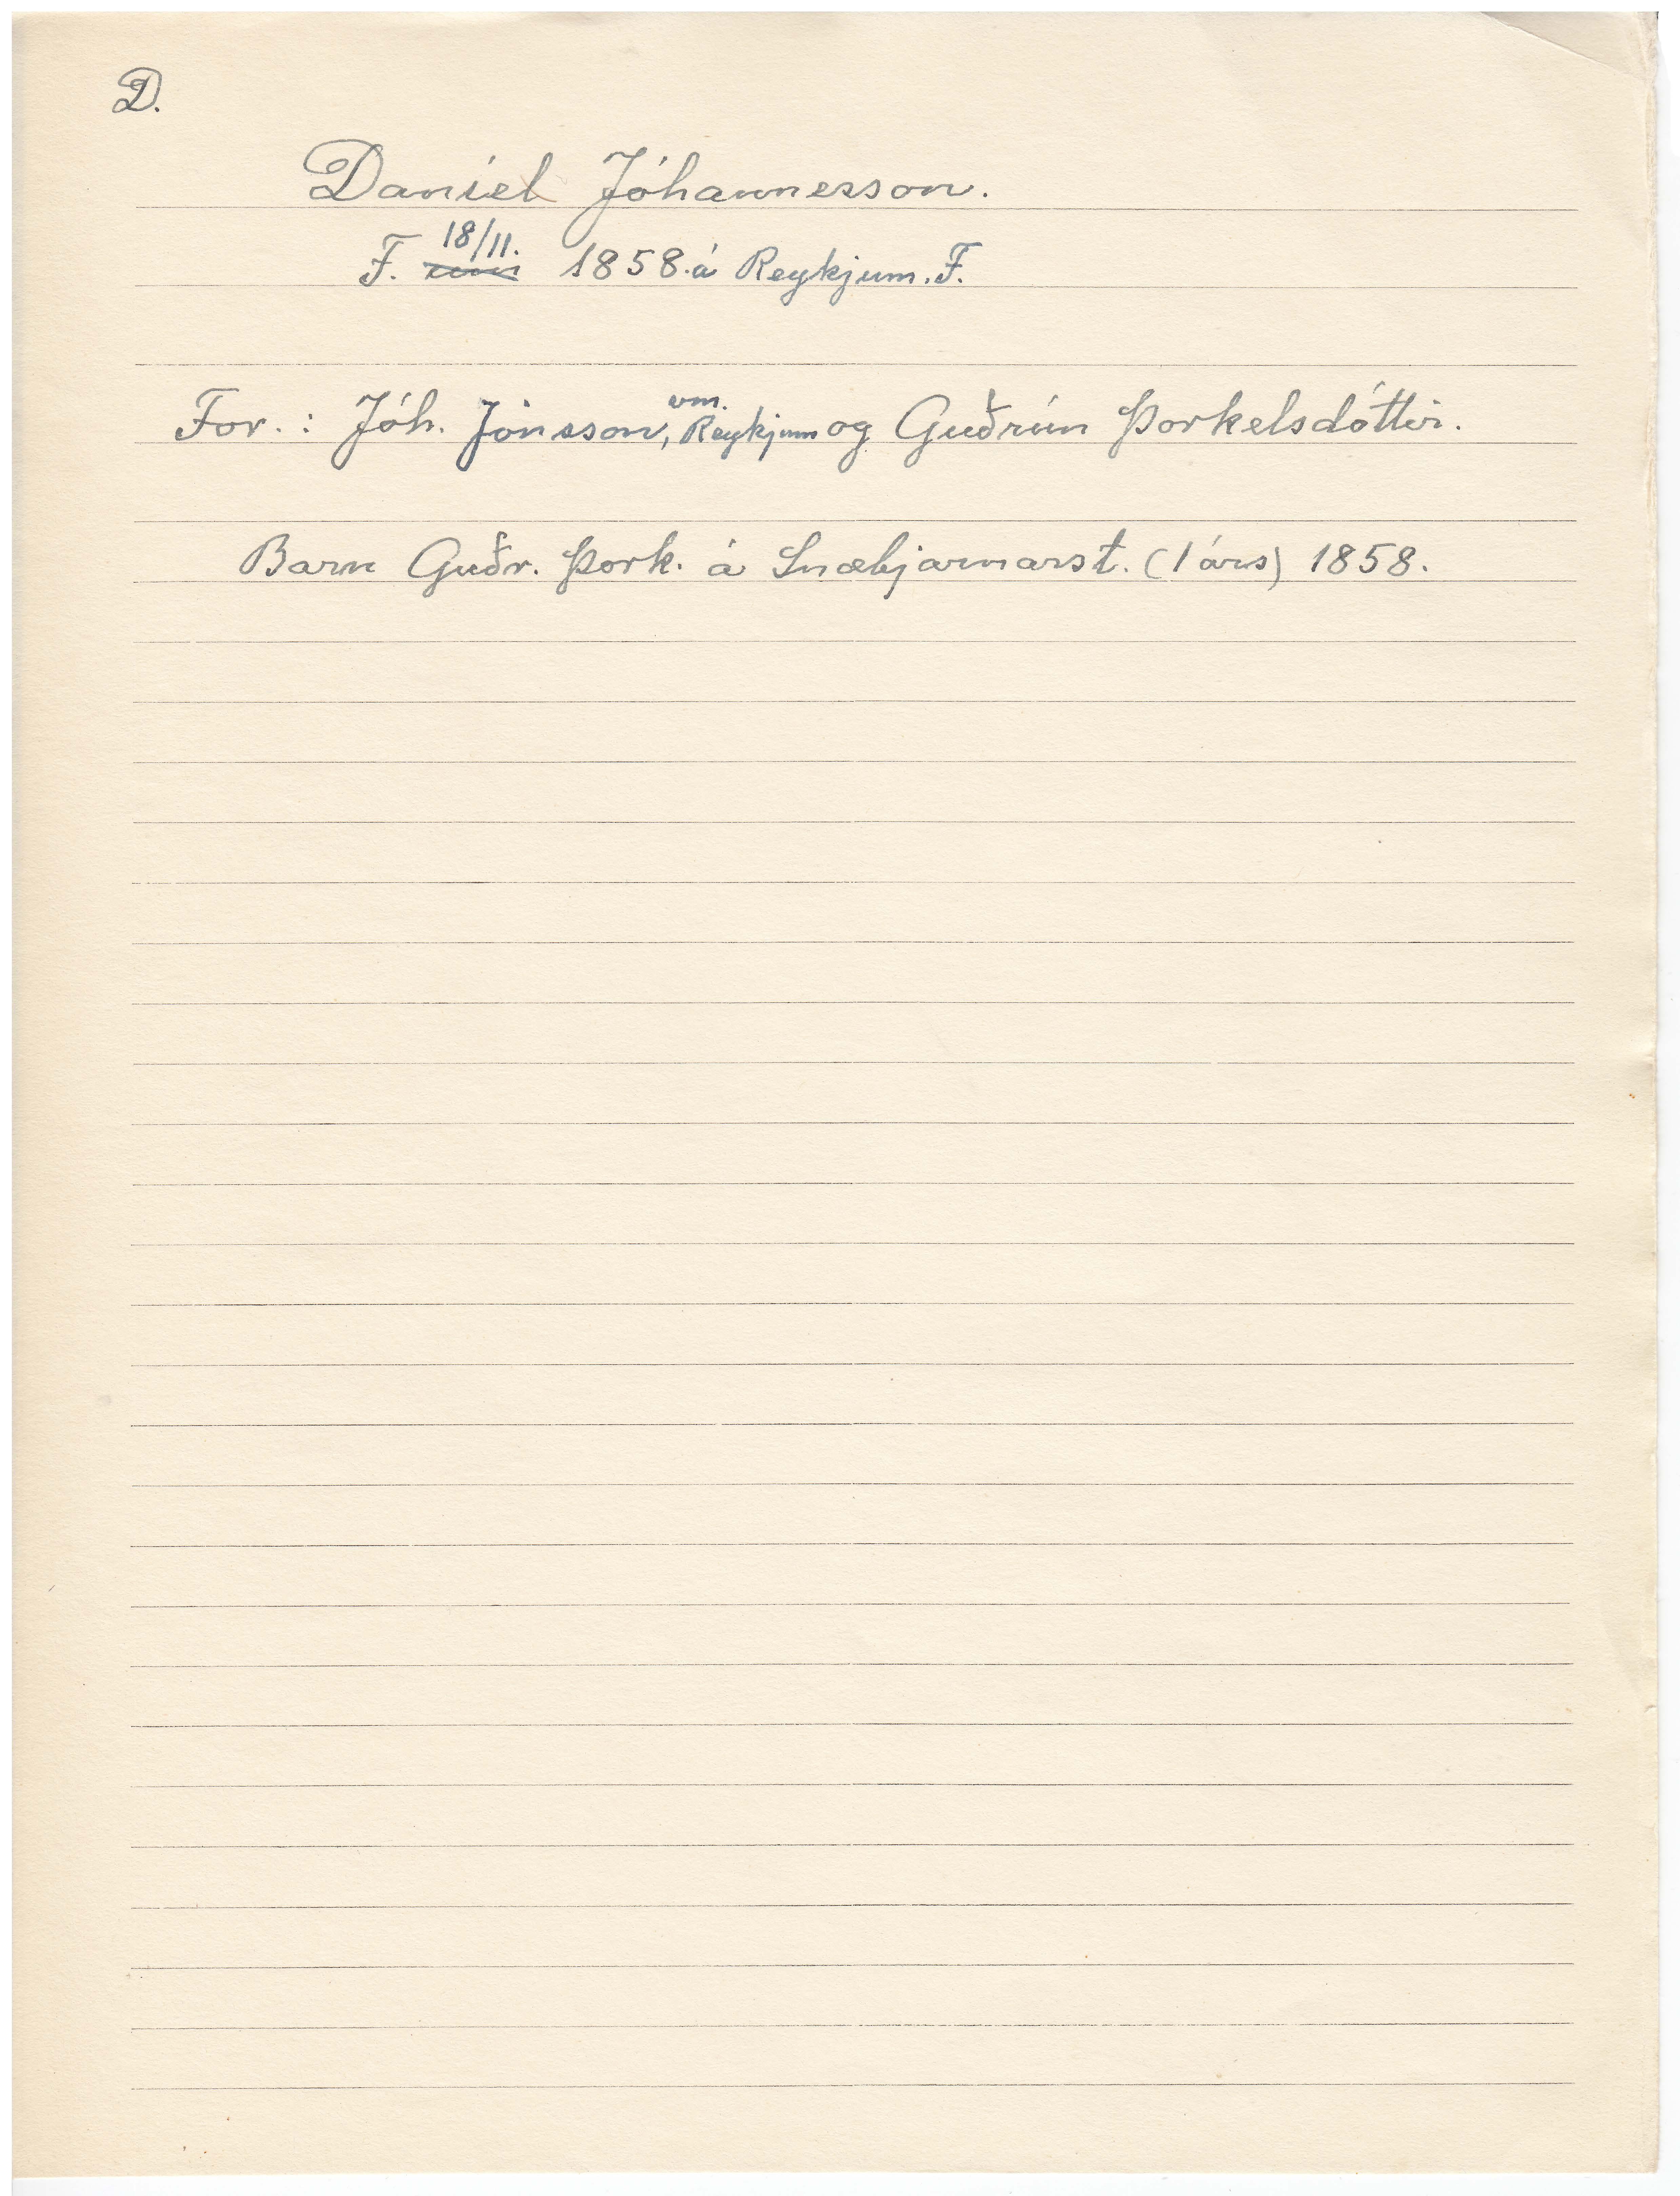 D.
Daníel Jóhannesson.
F. 18/11. 1858 á Reykjum. F.
For.: Jóh. Jónsson, vm. Reykjum og Guðrún Þorkelsdóttir.
Barn Guðr. Þork. á Snæbjarnarst. (1 árs) 1858.